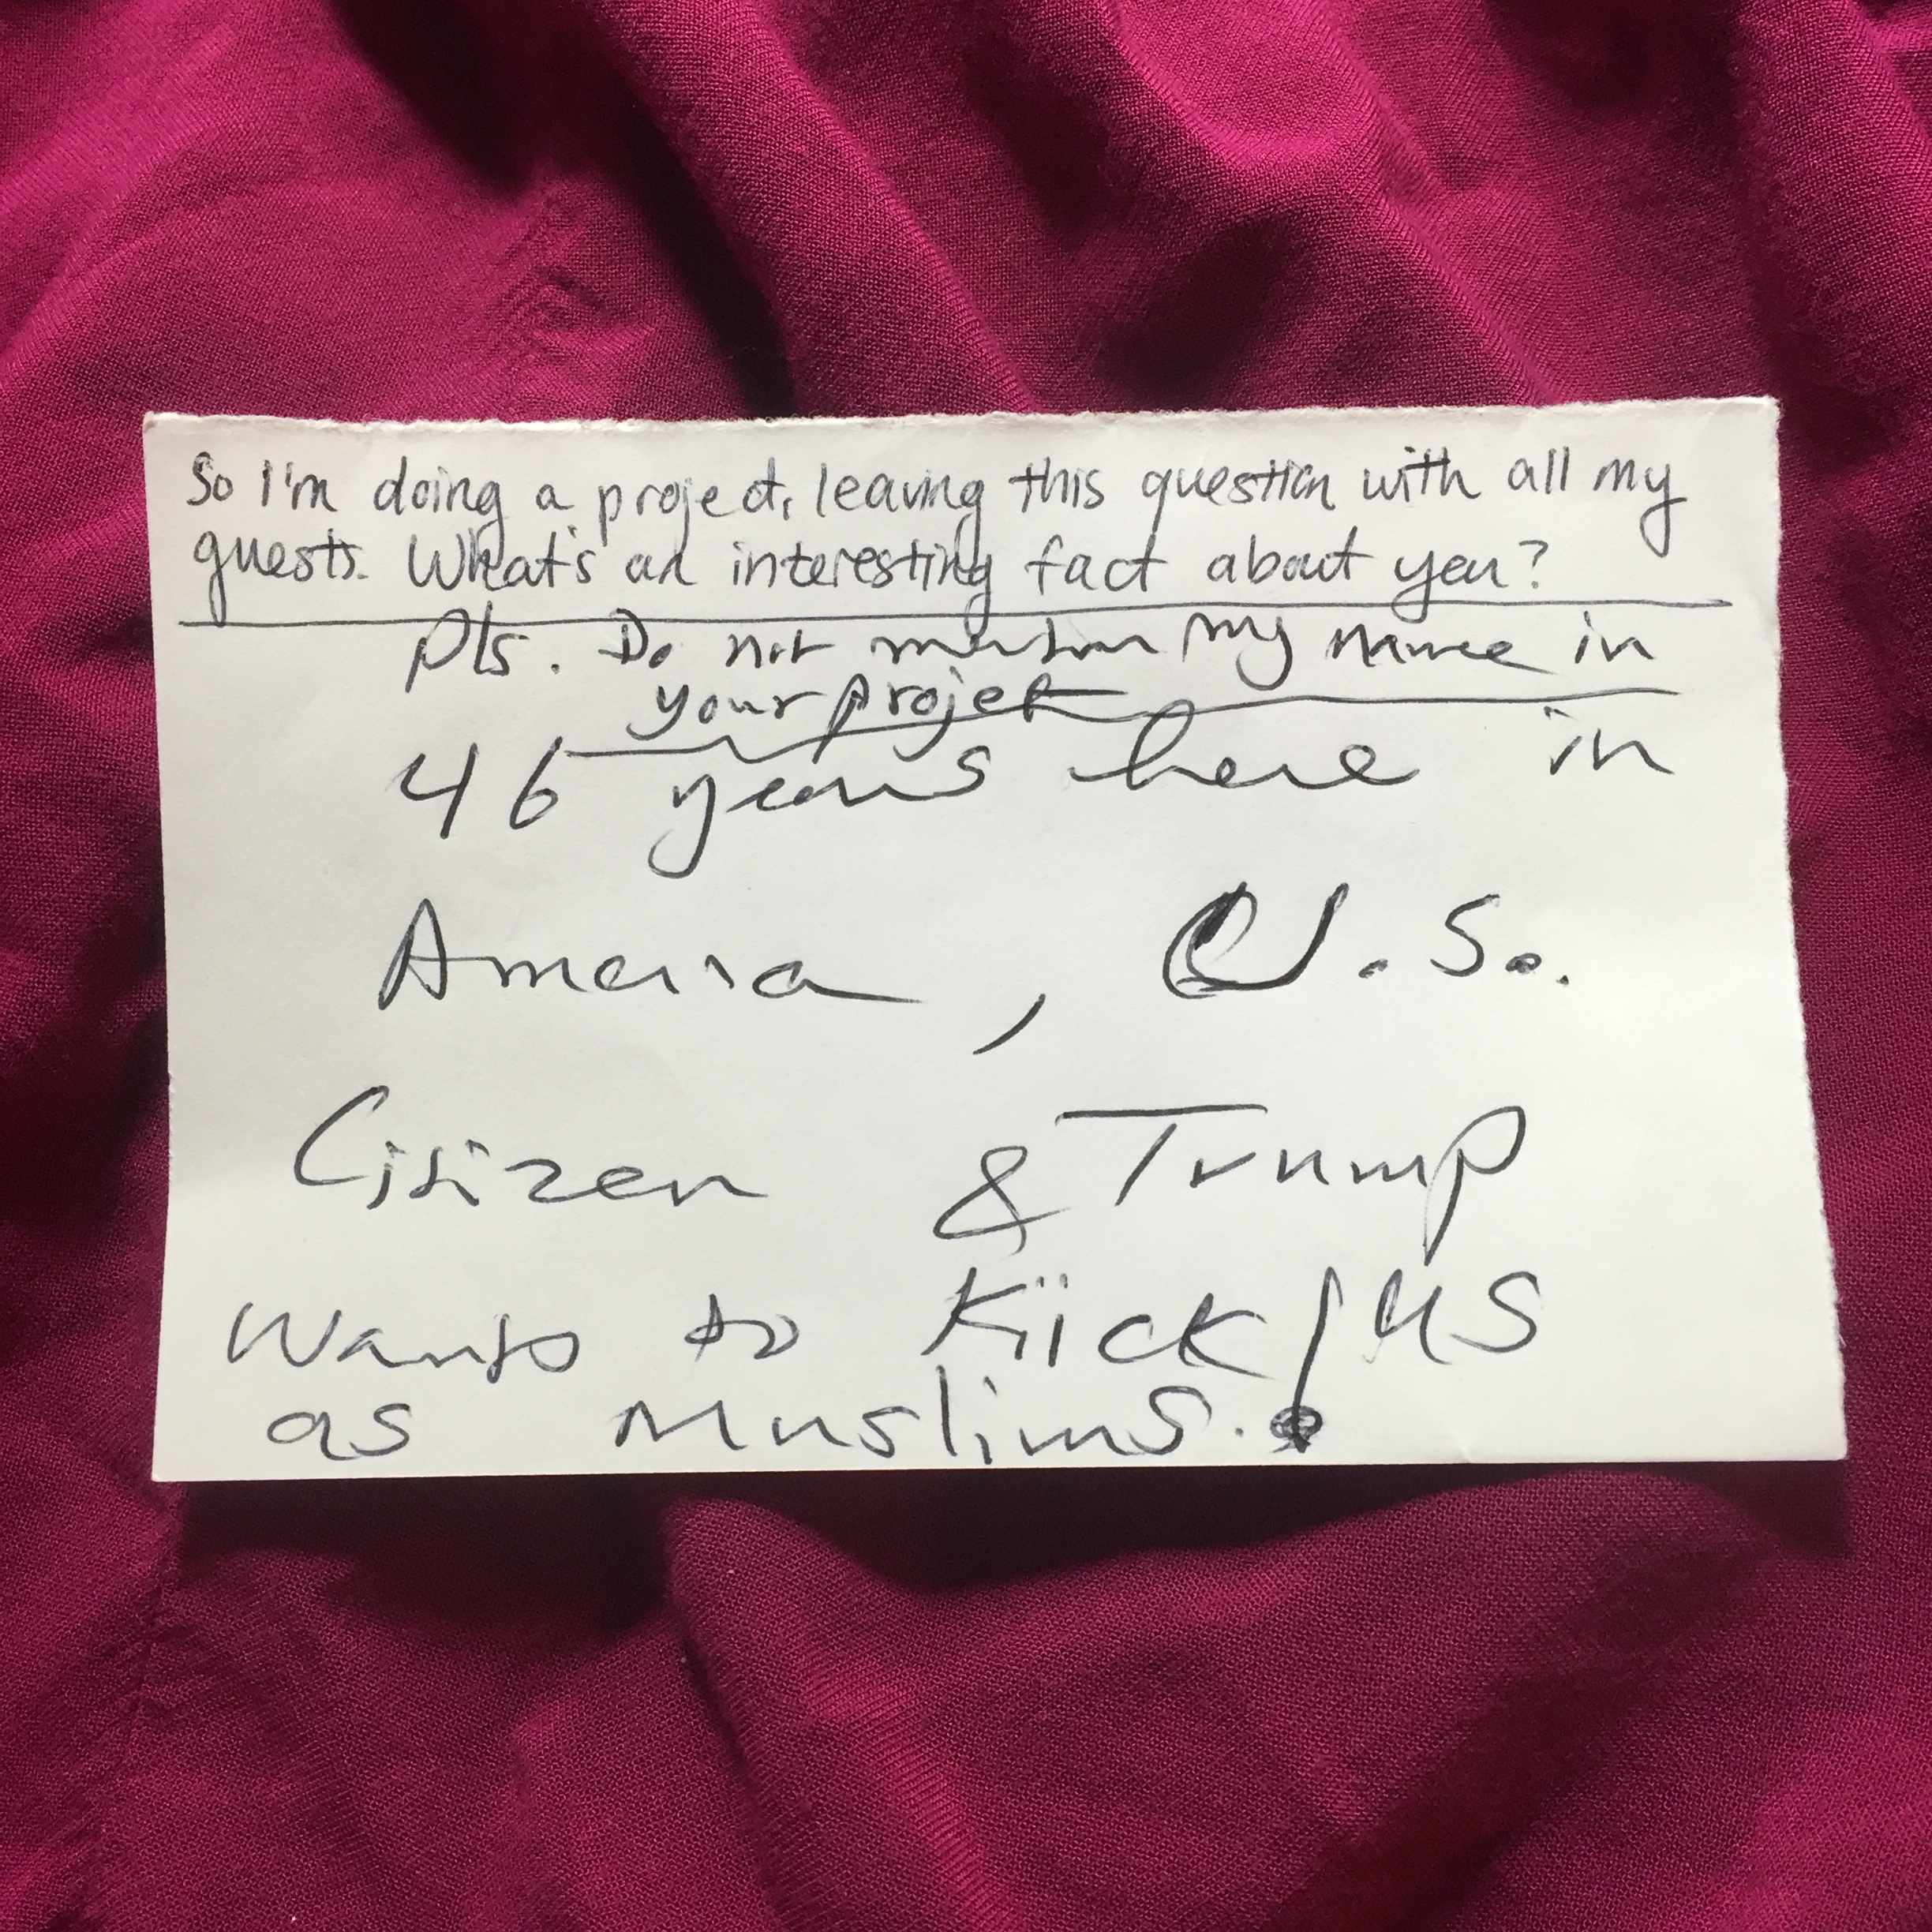 So I'm doing a project, leaving this question with all my
guests. What's an interesting fact about you?
Pls. Do not mention my name in
your projet
46 years here in
America, U.S.
Citizen & Trump
wants to Kiick us
as Muslims.!